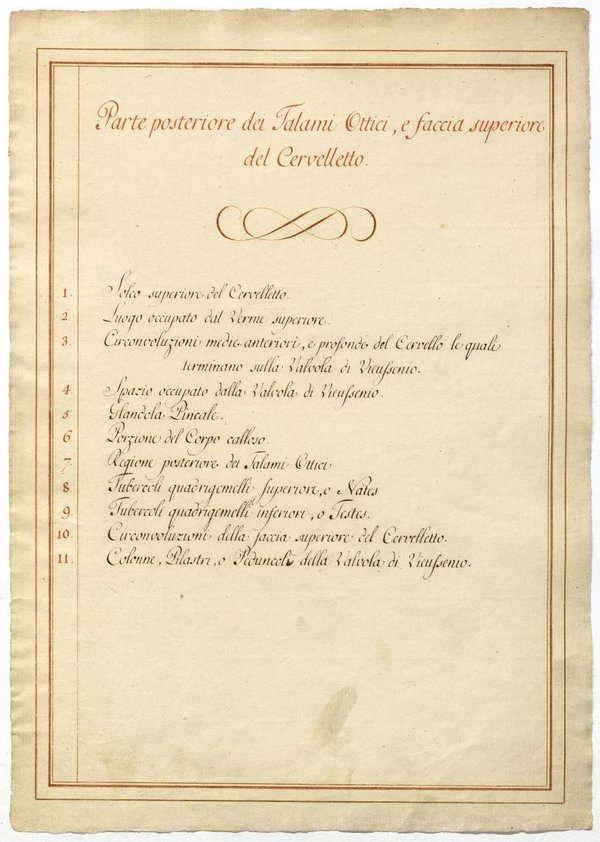 Parte posteriore dei Talami Ottici, e faccia superiore
del Cervelletto.
1. Solco superiore del Cervelletto.
2. Luogo occupato dal Verme superiore.
3. Circonvoluzioni medie anteriori, e profonde del Cervello le quali
terminano sulla Valvola di Vieussenio.
4. Spazio occupato dalla Valvola di Vieussenio.
5. Glandola Pineale.
6. Porzione del Corpo calloso.
7. Regione posteriore dei Talami Ottici
8. Tubercoli quadrigemelli superiore, o Nates
9. Tubercoli quadrigemelli inferiori, o Testes.
10. Circonvoluzioni della faccia superiore del Cervelletto.
11. Colonne, Pilastri, o Peduncoli della Valvola di Vieussenio.